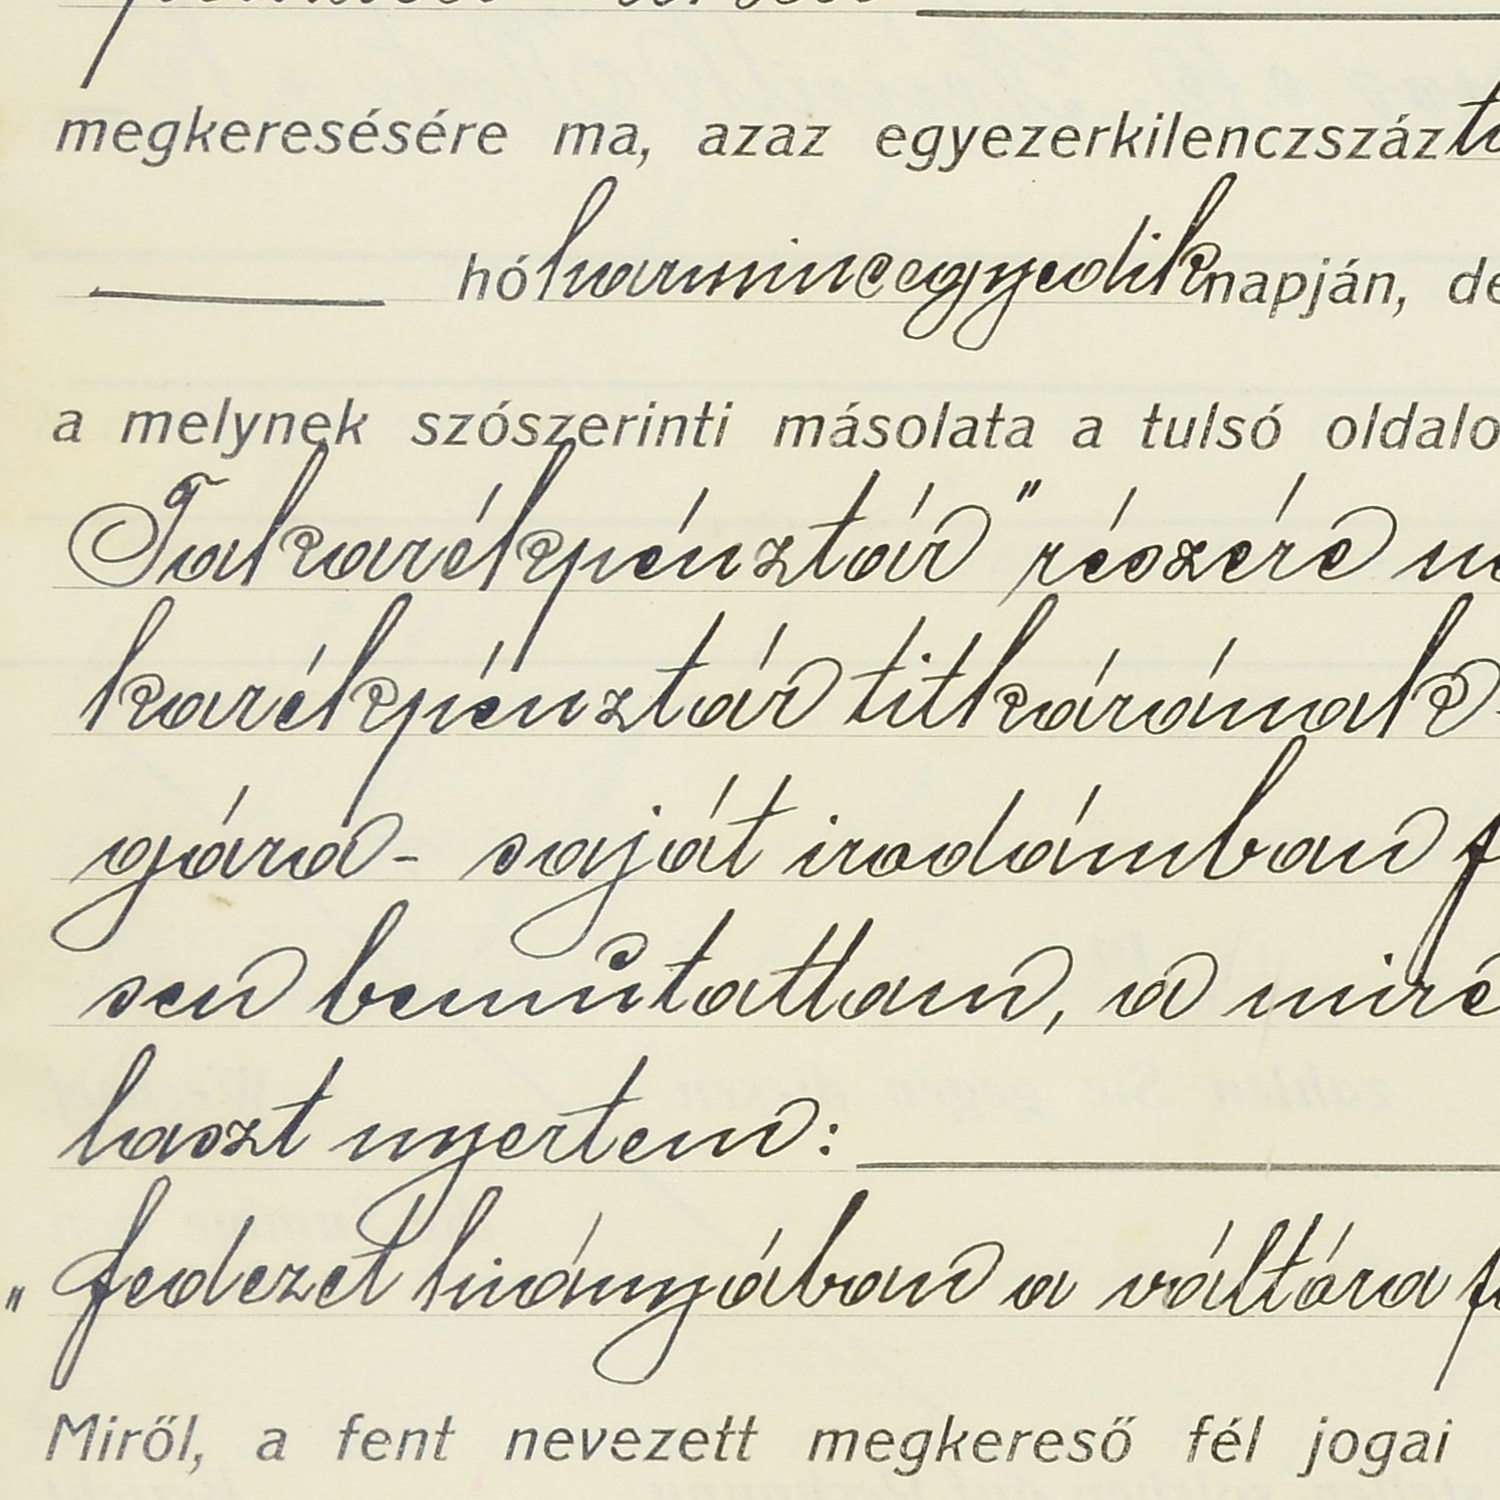 megkeresésére ma, azaz egyezerkilenczszáz
hó harmincegyedik napján, de
a melynek szószerinti másolata a tulsó oldalo
Takarékpénztár" részére
karékpénztár titkárának
gárd- saját irodámban
sen bemûtattam, a mire
laszt nyertem:
"fedezet hiányában a váltóra
Miről, a fent nevezett megkereső fél jogai